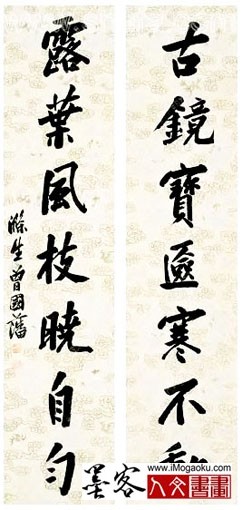 古鏡寶匳寒不
露葉風枝曉自勻
滌生曾國藩
墨客
www.iMogaoku.com
人文書畫